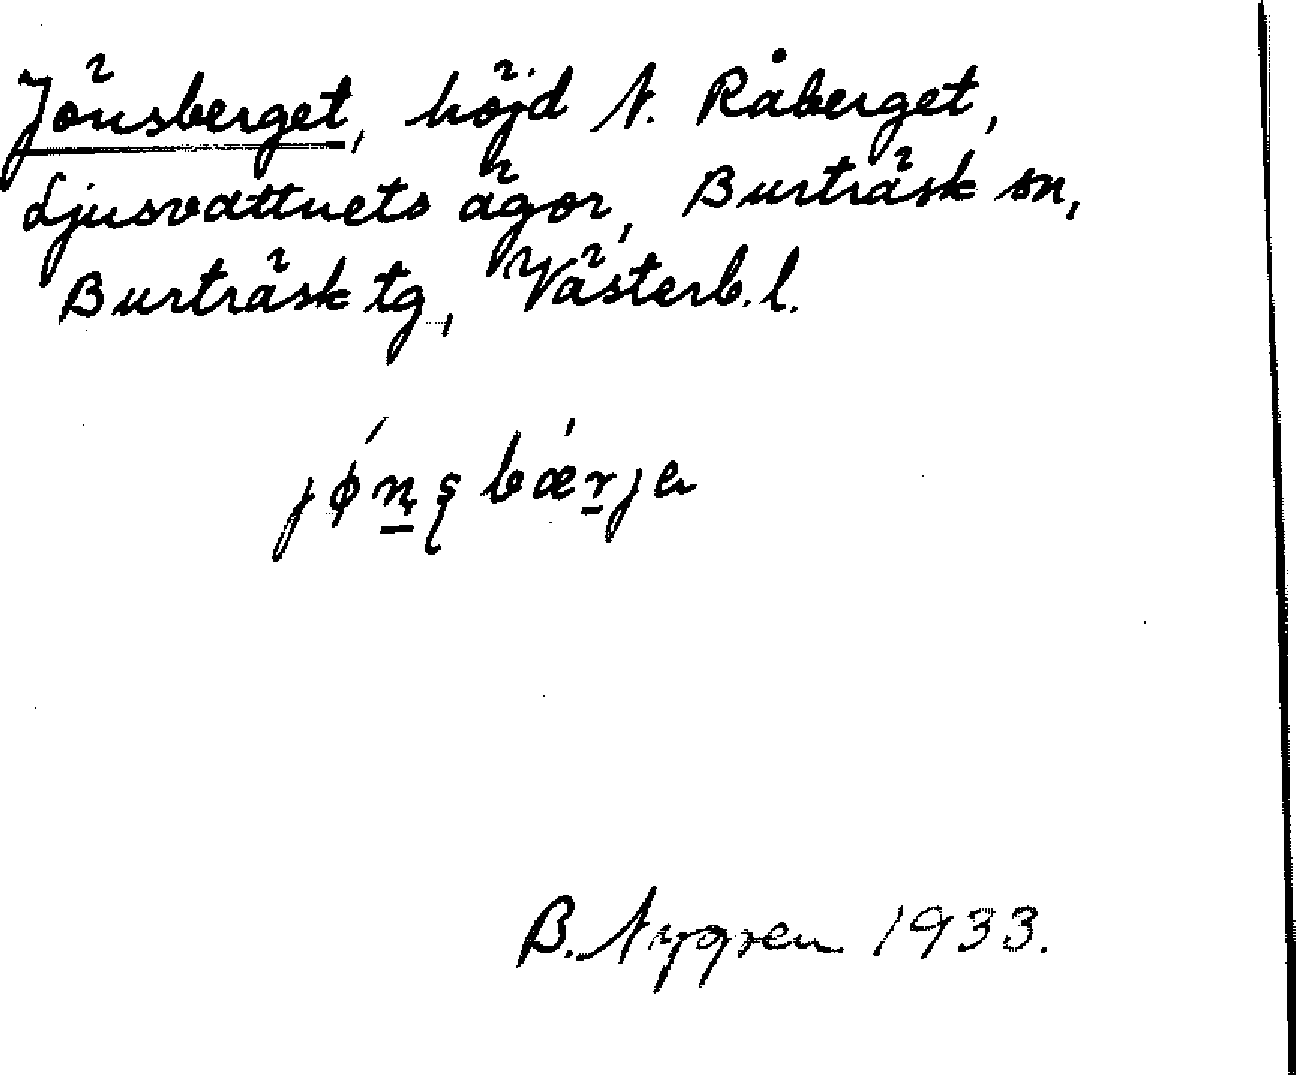 Jönsberget, höjd N. Råberget,
Ljusvattnets ägor, Burträsk sn,
Burträsk tg, Västerb. l.
jǿn̠ʂbǽr̠ja
B. Nygren 1933.